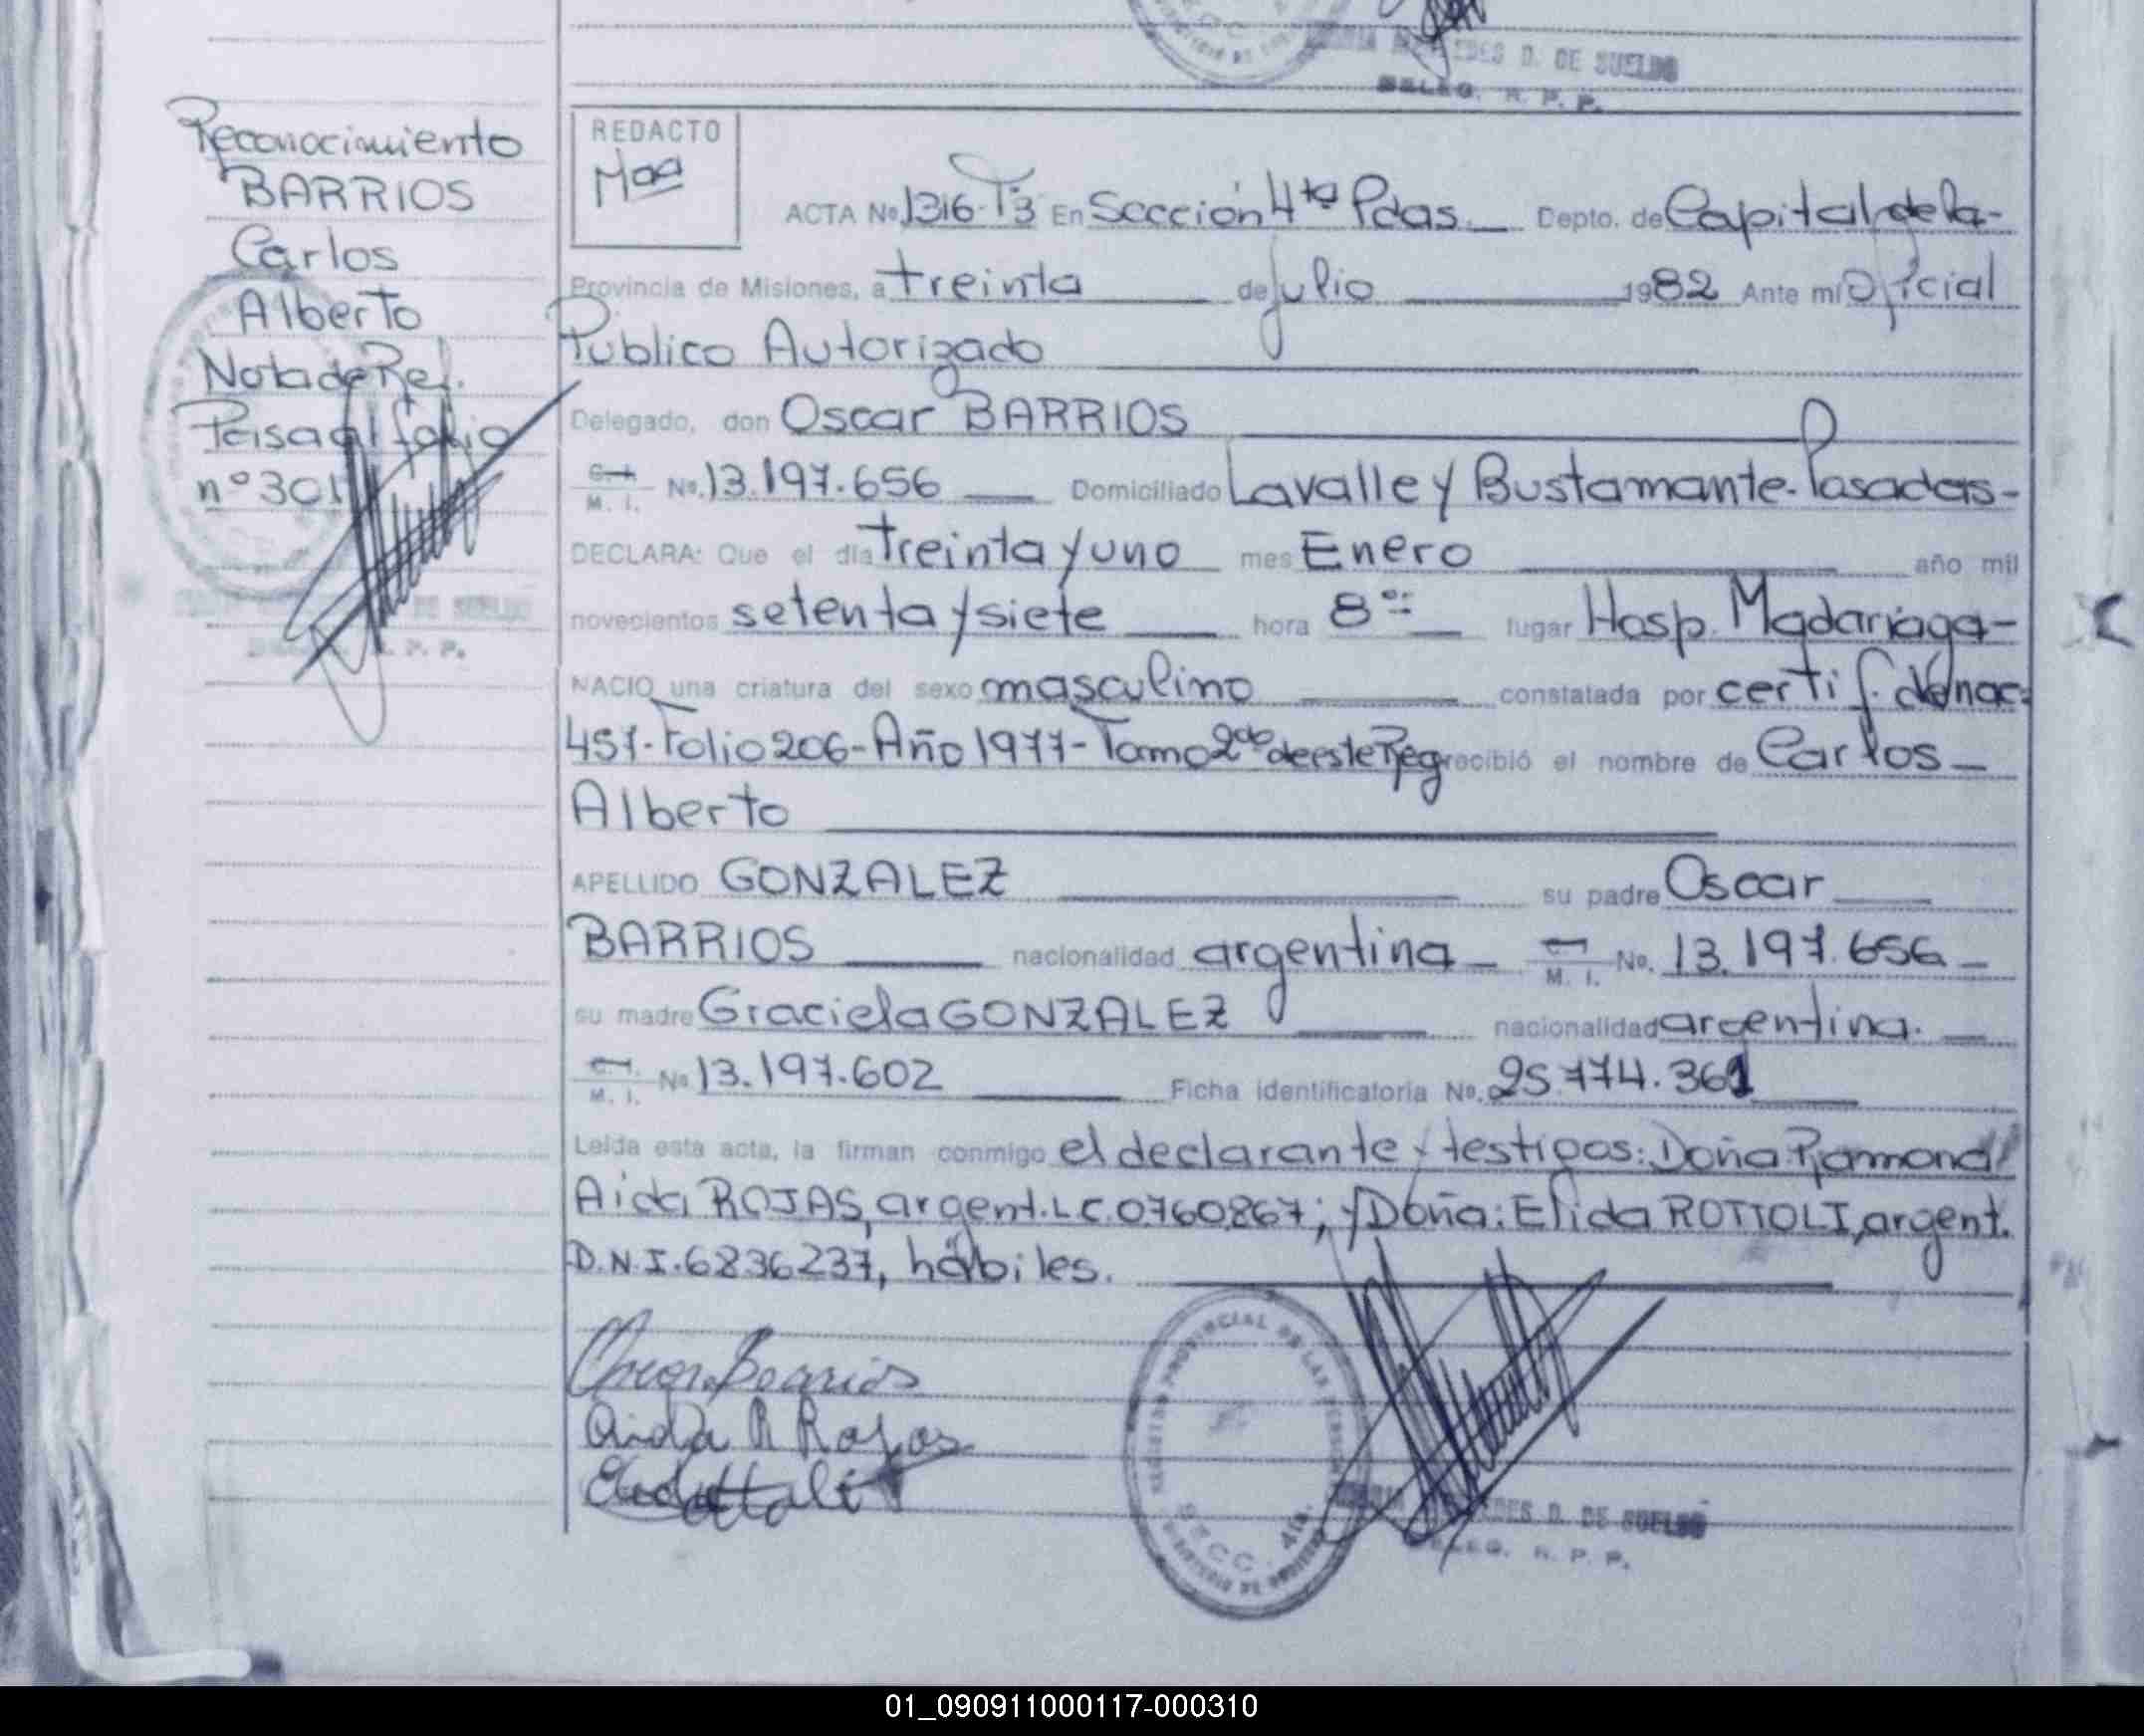 DES D. DE SUELDO
DELEG. R. P. P.
Reconocimiento
BARRIOS
Carlos
Alberto
Nota de Ref.
Pasa al folio
nº 301
DE SUELDO
P. P.
REDACTO
ACTA No. 1316-T3 En Sección 4ta Pdas. Depto. de Capital de la-
Provincia de Misiones, a treinta de Julio 1982 Ante mí Oficial
Público Autorizado
Delegado, don Oscar BARRIOS
M. I. No. 13.197.656 Domiciliado Lavalle y Bustamante-Posadas-
DECLARA: Que el día Treinta y uno mes Enero año mil
novecientos setenta y siete hora 8 lugar Hosp. Madariaga-
NACIO una criatura del sexo masculino constatada por certif. de nac:
457-Folio 206-Año 1977-Tomo 2do de este Reg recibió el nombre de Carlos-
Alberto
APELLIDO GONZALEZ su padre Oscar
BARRIOS nacionalidad argentina- M. I. No. 13.197.656-
su madre Graciela GONZALEZ nacionalidad argentina.
M. I. No 13.197.602 Ficha identificatoria No. 25.774.361
Leída esta acta, la firman conmigo el declarante y testigos: Doña Ramona
Aida ROJAS, argent. L.C. 0760867; y Doña: Elida ROTTOLI, argent.
D.N.I. 6836237, hábiles.
Oscar Barrios
Aida R Rojas
REGISTRO PROVINCIAL DE LAS PERSONAS
SECC. 4ta.
MINISTERIO DE GOBIERNO
DES D. DE SUELDO
DELEG. R. P. P.
01_090911000117-000310